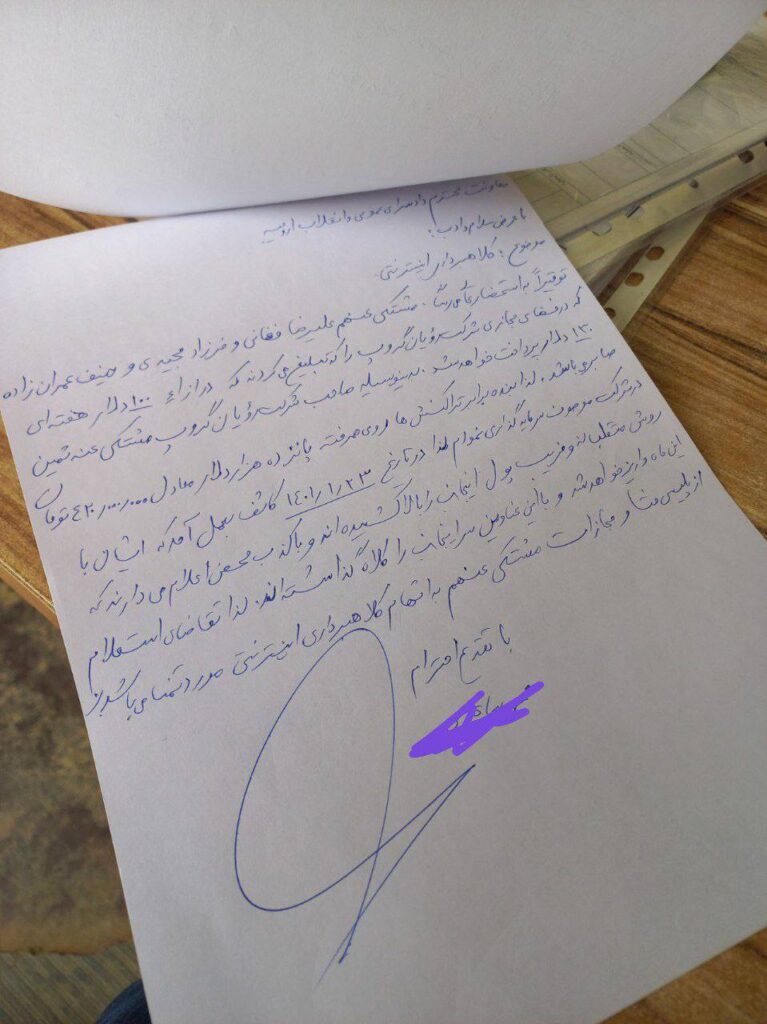 معاونت محترم دادسرای عمومی و انقلاب ارومیه
با عرض سلام و ادب؛
موضوع: کلاهبرداری اینترنتی.
توقیراً به استحضار عالی میرساند. مشتکی عنهم علیرضا فغانی و فرزاد مجیدی و حنیف عمران زاده
که در فضای مجازی شرکت رویان گروپ را که تبلیغ می کردند که در ازاء ۱۰۰ دلار هفته ای
۱۳۰ دلار پرداخت خواهد شد. بدینوسیله صاحب شرکت رویان گروپ مشتکی عنه ثمین
صابر می باشد. لذا بنده برابر تراکنش ها روی صرفته پانزده هزار دلار معادل ۴۲۰٬۰۰۰٬۰۰۰ تومان
در شرکت موصوف سرمایه گذاری نموده ام لذا در تاریخ ۱۴۰۱/۱/۲۳ کاشف بعمل آمد که ایشان با
روش متقلبانه و فریب پول اینجانب را بالا کشیده اند و با کذب محض اعلام می دارند که
این ماه واریز خواهد شد و با این عناوین سر اینجانب را کلاه گذاشته اند. لذا تقاضای استعلام
از پلیس فتا و مجازات مشتکی عنهم به اتهام کلاهبرداری اینترنتی مورد تمنا می باشد
با تقدیم احترام